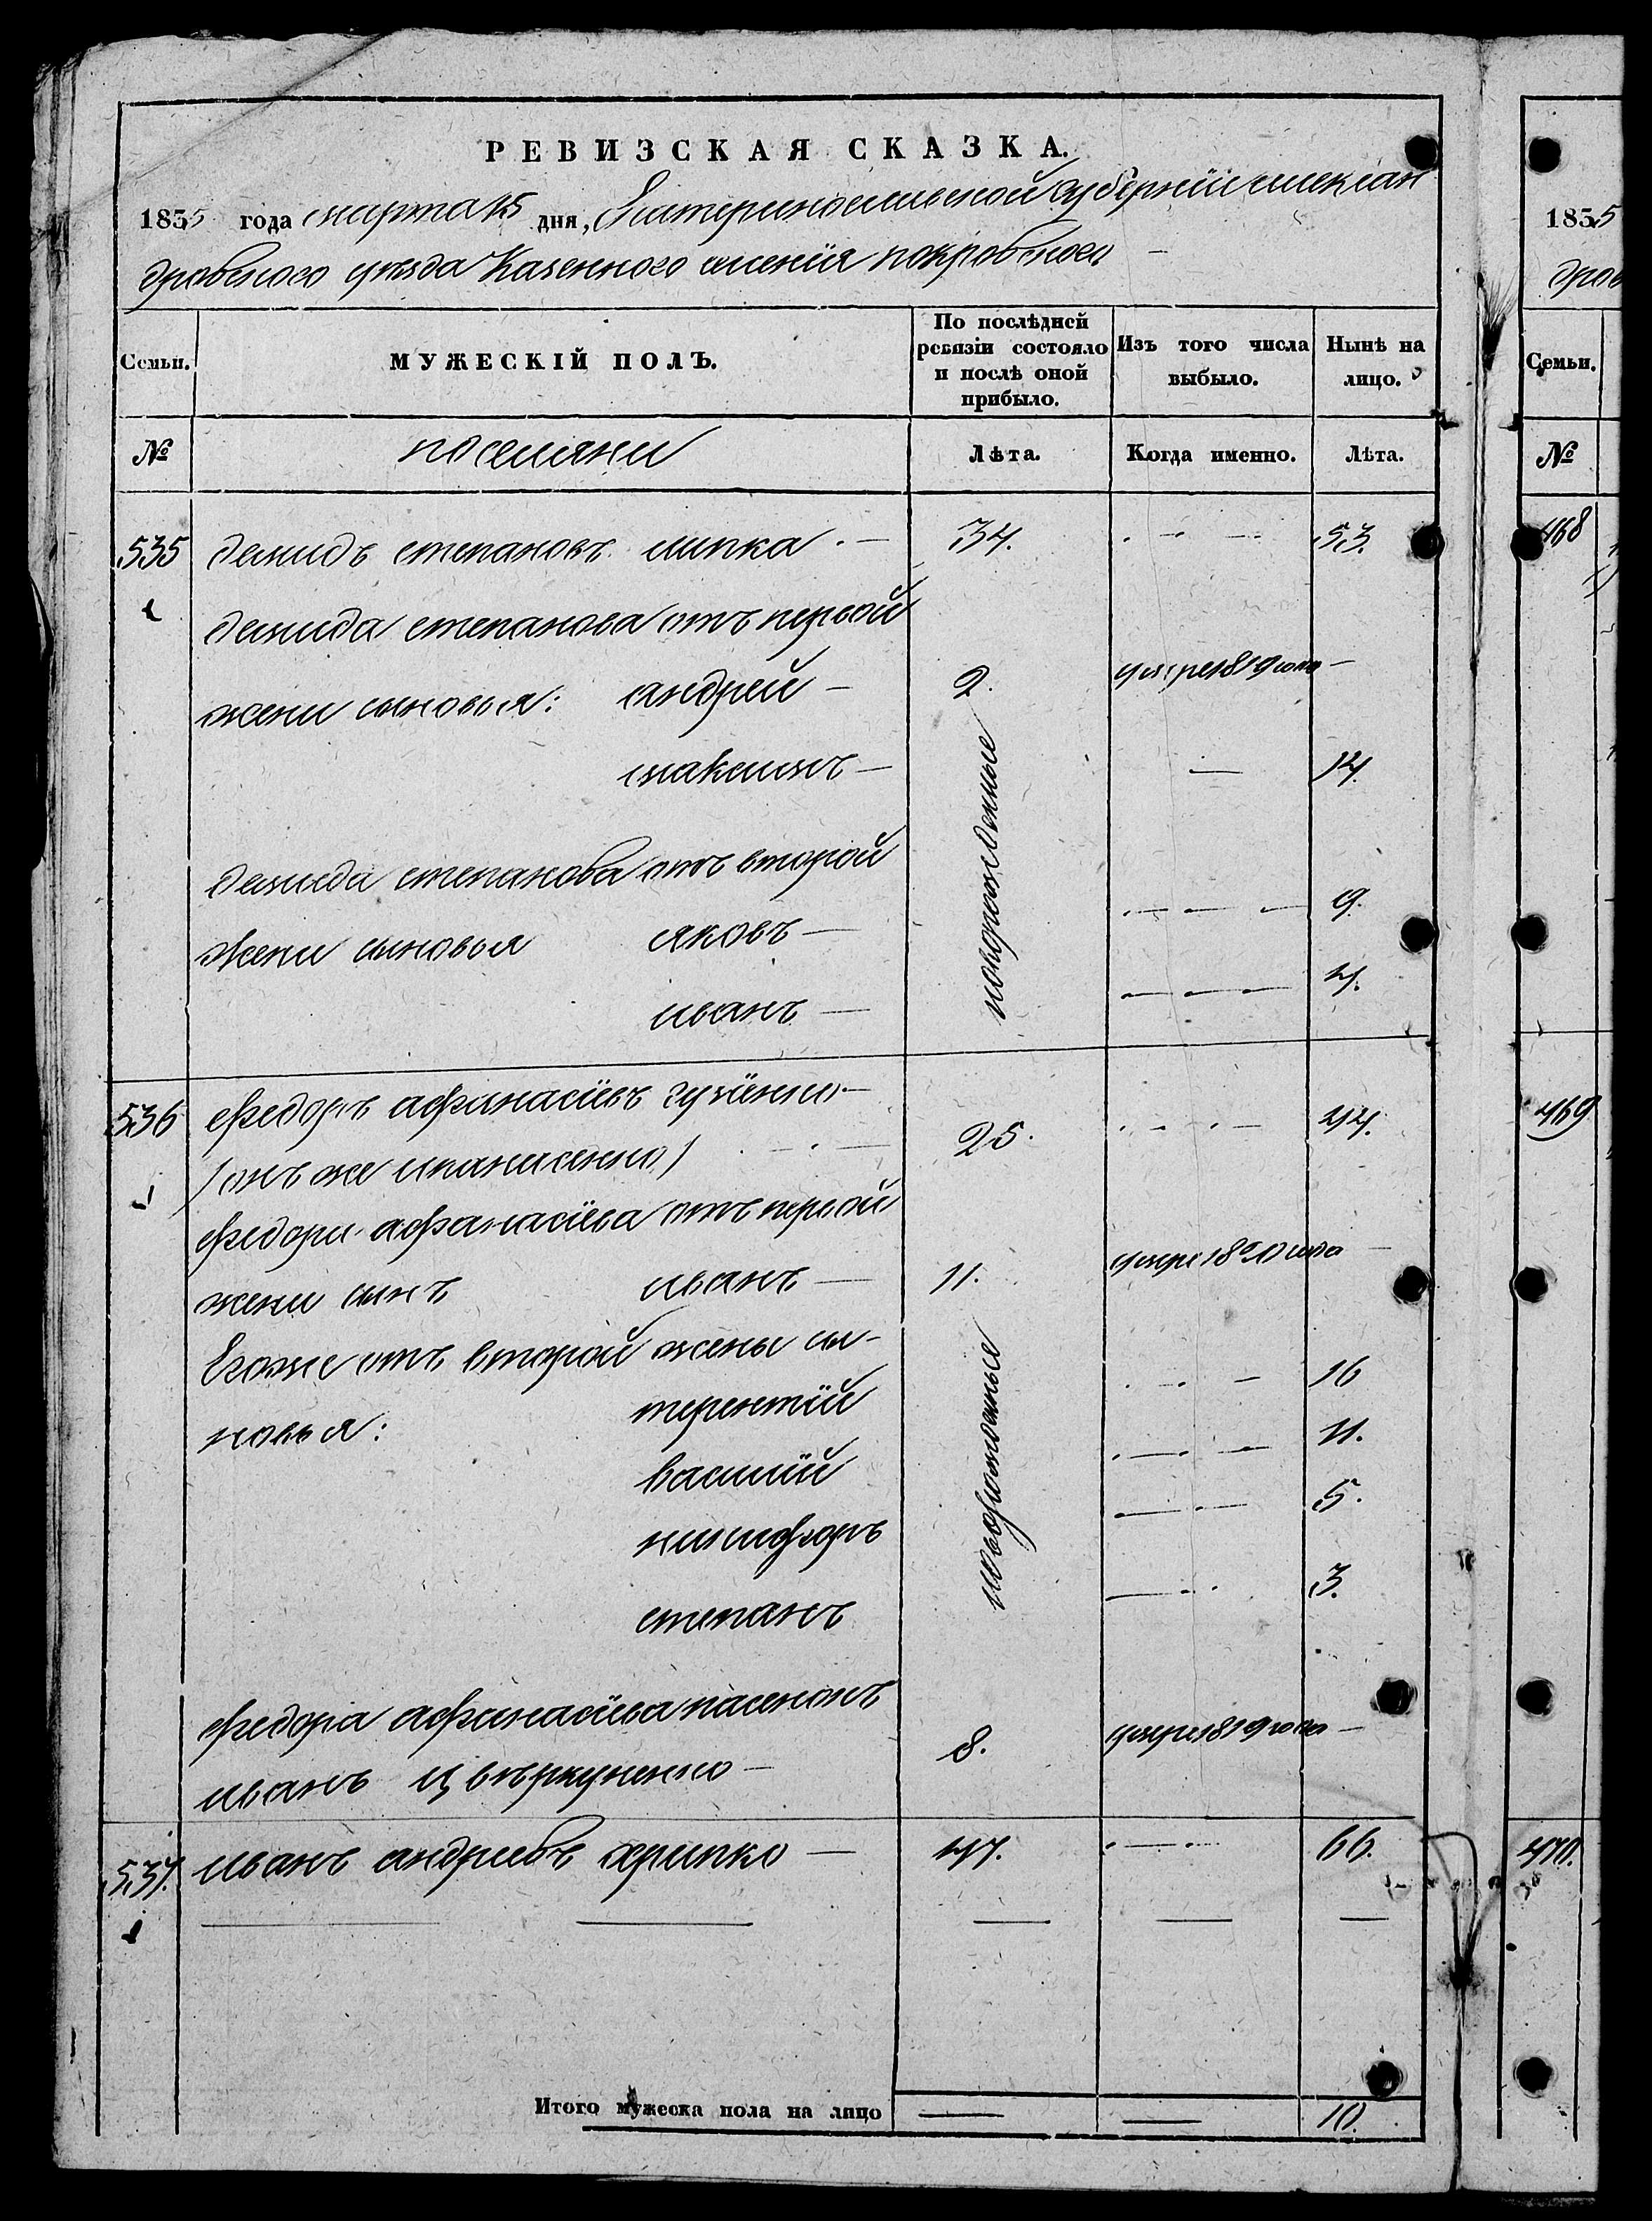 РЕВИЗСКАЯ СКАЗКА.
1835 года марта 15 дня, Екатеринославской губернии Алексан
дровского уезда Казенного имения Покровского —
Семьи. МУЖЕСКІЙ ПОЛЪ. По послѣдней ревизіи состояло и послѣ оной прибыло. Изъ того числа выбыло. Нынѣ на лицо.
№ поселяни Лѣта. Когда именно. Лѣта.
535 демидъ степановъ липка 34. 53.
1
демида степанова отъ первой
жени сыновья: андрей — 2. умре 1819 года —
новорожденные
максимъ — — 14.
демида степанова отъ второй
жени сыновья яковъ — 9.
иванъ — 4.
536 федоръ афанасіевъ —
1
/онъ же / 25. 44.
федора афанасіева отъ первой
жени сынъ иванъ — 11. умре года —
Егоже отъ второй жены сы-
новья: терентій 16
василій 11.
никифоръ 5.
степанъ 3.
федора афанасіева пасенокъ
иванъ цвѣркуненко — 8. умре 1819 года —
537. иванъ андріевъ хрипко — 47. 66.
1
Итого мужеска пола на лицо — — 10.
1835
дров
Семьи.
№
468
469
470.